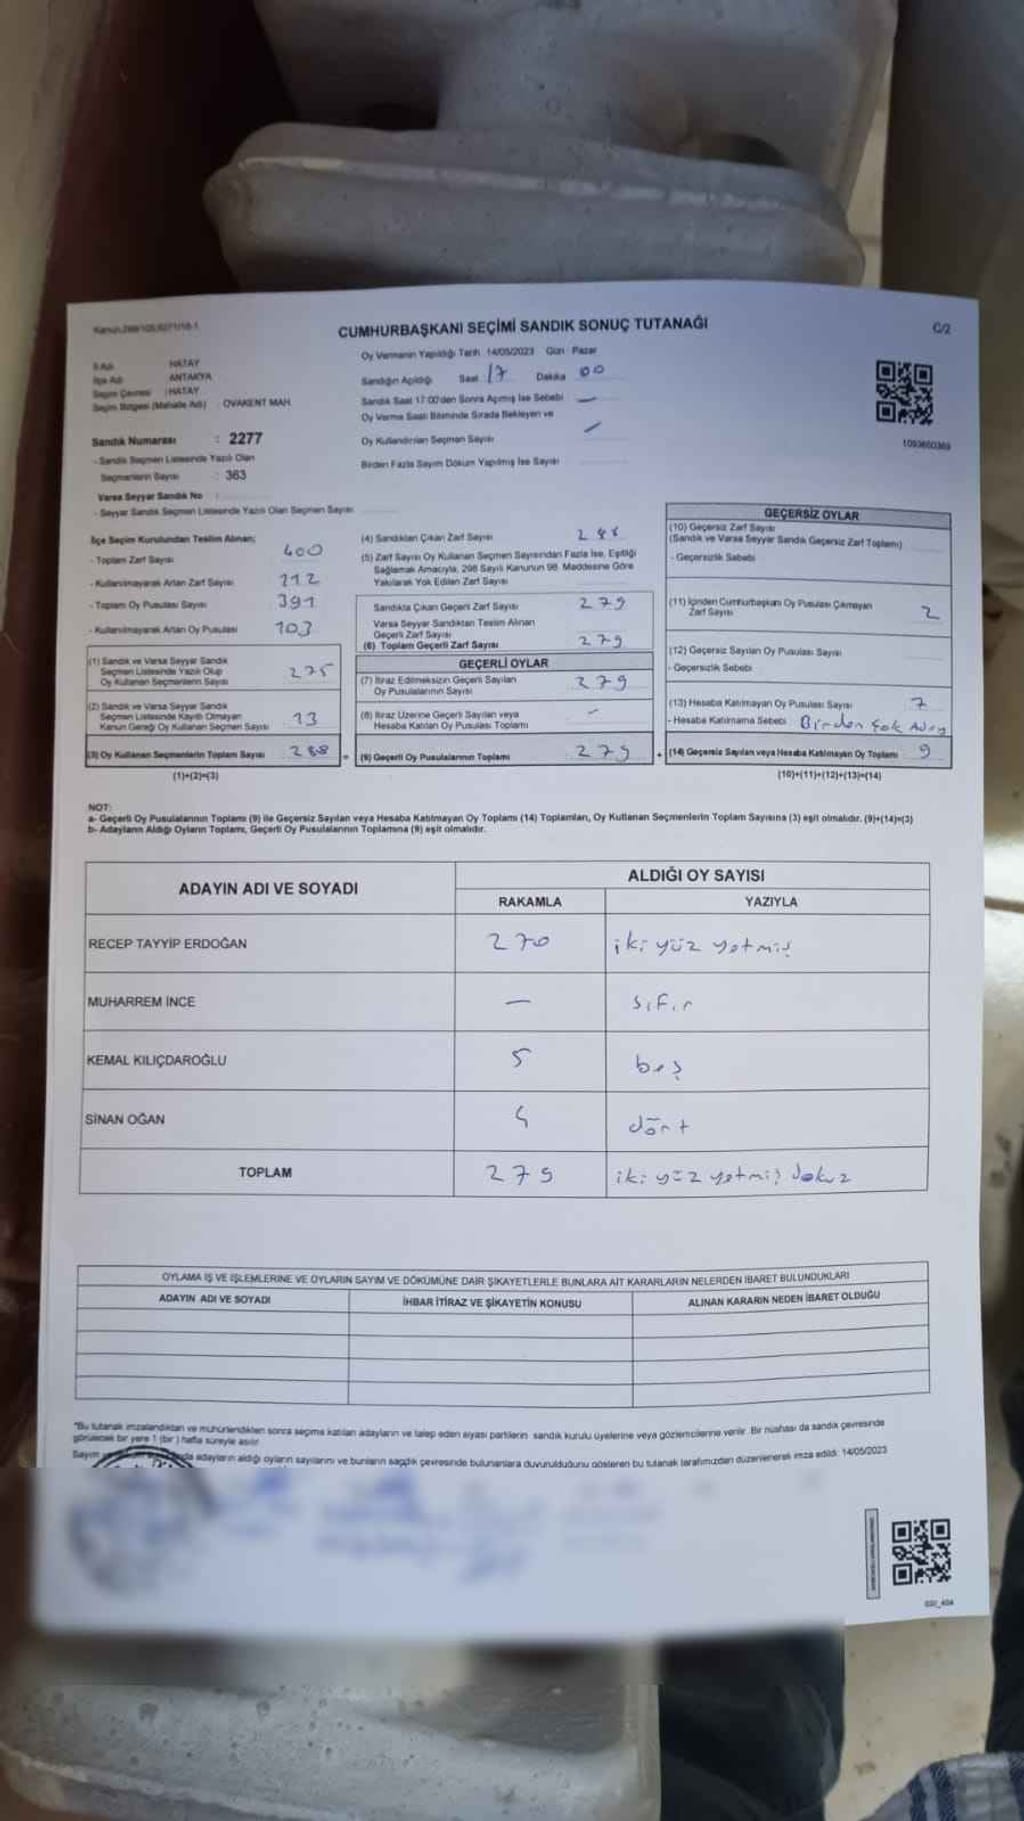 CUMHURBAŞKANI SEÇİMİ SANDIK SONUÇ TUTANAĞI
C/2
İl Adı HATAY
İlçe Adı ANTAKYA
Seçim Çevresi : HATAY
Seçim Bölgesi (Mahalle Adı) OVAKENT MAH.
Sandık Numarası : 2277
- Sandık Seçmen Listesinde Yazılı Olan
Seçmenlerin Sayısı : 363
Varsa Seyyar Sandık No :
- Seyyar Sandık Seçmen Listesinde Yazılı Olan Seçmen Sayısı
Oy Vermenin Yapıldığı Tarih 14/05/2023 Gün Pazar
Sandığın Açıldığı Saat 17 Dakika 00
Sandık Saat 17:00'den Sonra Açılmış İse Sebebi —
Oy Verme Saati Bitiminde Sırada Bekleyen ve
Oy Kullandırılan Seçmen Sayısı
Birden Fazla Sayım Döküm Yapılmış İse Sayısı
1093650363
İlçe Seçim Kurulundan Teslim Alınan;
- Toplam Zarf Sayısı 400
- Kullanılmayarak Artan Zarf Sayısı 112
- Toplam Oy Pusulası Sayısı 391
- Kullanılmayarak Artan Oy Pusulası 103
(1) Sandık ve Varsa Seyyar Sandık
Seçmen Listesinde Yazılı Olup
Oy Kullanan Seçmenlerin Sayısı 275
(2) Sandık ve Varsa Seyyar Sandık
Seçmen Listesinde Kayıtlı Olmayan
Kanun Gereği Oy Kullanan Seçmen Sayısı 13
(3) Oy Kullanan Seçmenlerin Toplam Sayısı 288
(1)+(2)=(3)
(4) Sandıktan Çıkan Zarf Sayısı 288
(5) Zarf Sayısı Oy Kullanan Seçmen Sayısından Fazla İse, Eşitliği
Sağlamak Amacıyla, 298 Sayılı Kanunun 98. Maddesine Göre
Yakılarak Yok Edilen Zarf Sayısı
Sandıkta Çıkan Geçerli Zarf Sayısı 279
Varsa Seyyar Sandıktan Teslim Alınan
Geçerli Zarf Sayısı
(6) Toplam Geçerli Zarf Sayısı 279
GEÇERLİ OYLAR
(7) İtiraz Edilmeksizin Geçerli Sayılan
Oy Pusulalarının Sayısı 279
(8) İtiraz Üzerine Geçerli Sayılan veya
Hesaba Katılan Oy Pusulası Toplamı —
(9) Geçerli Oy Pusulalarının Toplamı 279
GEÇERSİZ OYLAR
(10) Geçersiz Zarf Sayısı
(Sandık ve Varsa Seyyar Sandık Geçersiz Zarf Toplamı)
- Geçersizlik Sebebi
(11) İçinden Cumhurbaşkanı Oy Pusulası Çıkmayan
Zarf Sayısı 2
(12) Geçersiz Sayılan Oy Pusulası Sayısı
- Geçersizlik Sebebi
(13) Hesaba Katılmayan Oy Pusulası Sayısı 7
- Hesaba Katılmama Sebebi Birden Çok Aday
(14) Geçersiz Sayılan veya Hesaba Katılmayan Oy Toplamı 9
(10)+(11)+(12)+(13)=(14)
NOT:
a- Geçerli Oy Pusulalarının Toplamı (9) ile Geçersiz Sayılan veya Hesaba Katılmayan Oy Toplamı (14) Toplamları, Oy Kullanan Seçmenlerin Toplam Sayısına (3) eşit olmalıdır. (9)+(14)=(3)
b- Adayların Aldığı Oyların Toplamı, Geçerli Oy Pusulalarının Toplamına (9) eşit olmalıdır.
ADAYIN ADI VE SOYADI ALDIĞI OY SAYISI
RAKAMLA YAZIYLA
RECEP TAYYİP ERDOĞAN 270 iki yüz yetmiş
MUHARREM İNCE — sıfır
KEMAL KILIÇDAROĞLU 5 beş
SİNAN OĞAN 4 dört
TOPLAM 279 iki yüz yetmiş dokuz
OYLAMA İŞ VE İŞLEMLERİNE VE OYLARIN SAYIM VE DÖKÜMÜNE DAİR ŞİKAYETLERLE BUNLARA AİT KARARLARIN NELERDEN İBARET BULUNDUKLARI
ADAYIN ADI VE SOYADI İHBAR İTİRAZ VE ŞİKAYETİN KONUSU ALINAN KARARIN NEDEN İBARET OLDUĞU
*Bu tutanak imzalandıktan ve mühürlendikten sonra seçime katılan adayların ve talep eden siyasi partilerin sandık kurulu üyelerine veya gözlemcilerine verilir. Bir nüshası da sandık çevresinde
görülecek bir yere 1 (bir) hafta süreyle asılır.
Sayım adayların aldığı oyların sayılarını ve bunların sandık çevresinde bulunanlara duyurulduğunu gösteren bu tutanak tarafımızdan düzenlenerek imza edildi. 14/05/2023